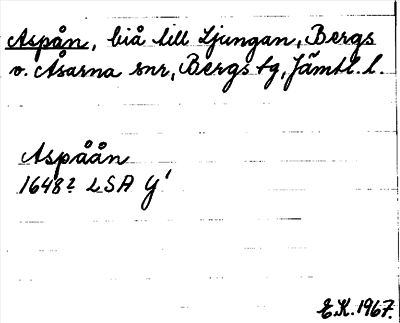 Aspån, biå till Ljungan, Bergs
o. Åsarna snr, Bergs tg, Jämtl. l.
Aspåån
1648? LSA
E.K. 1967.